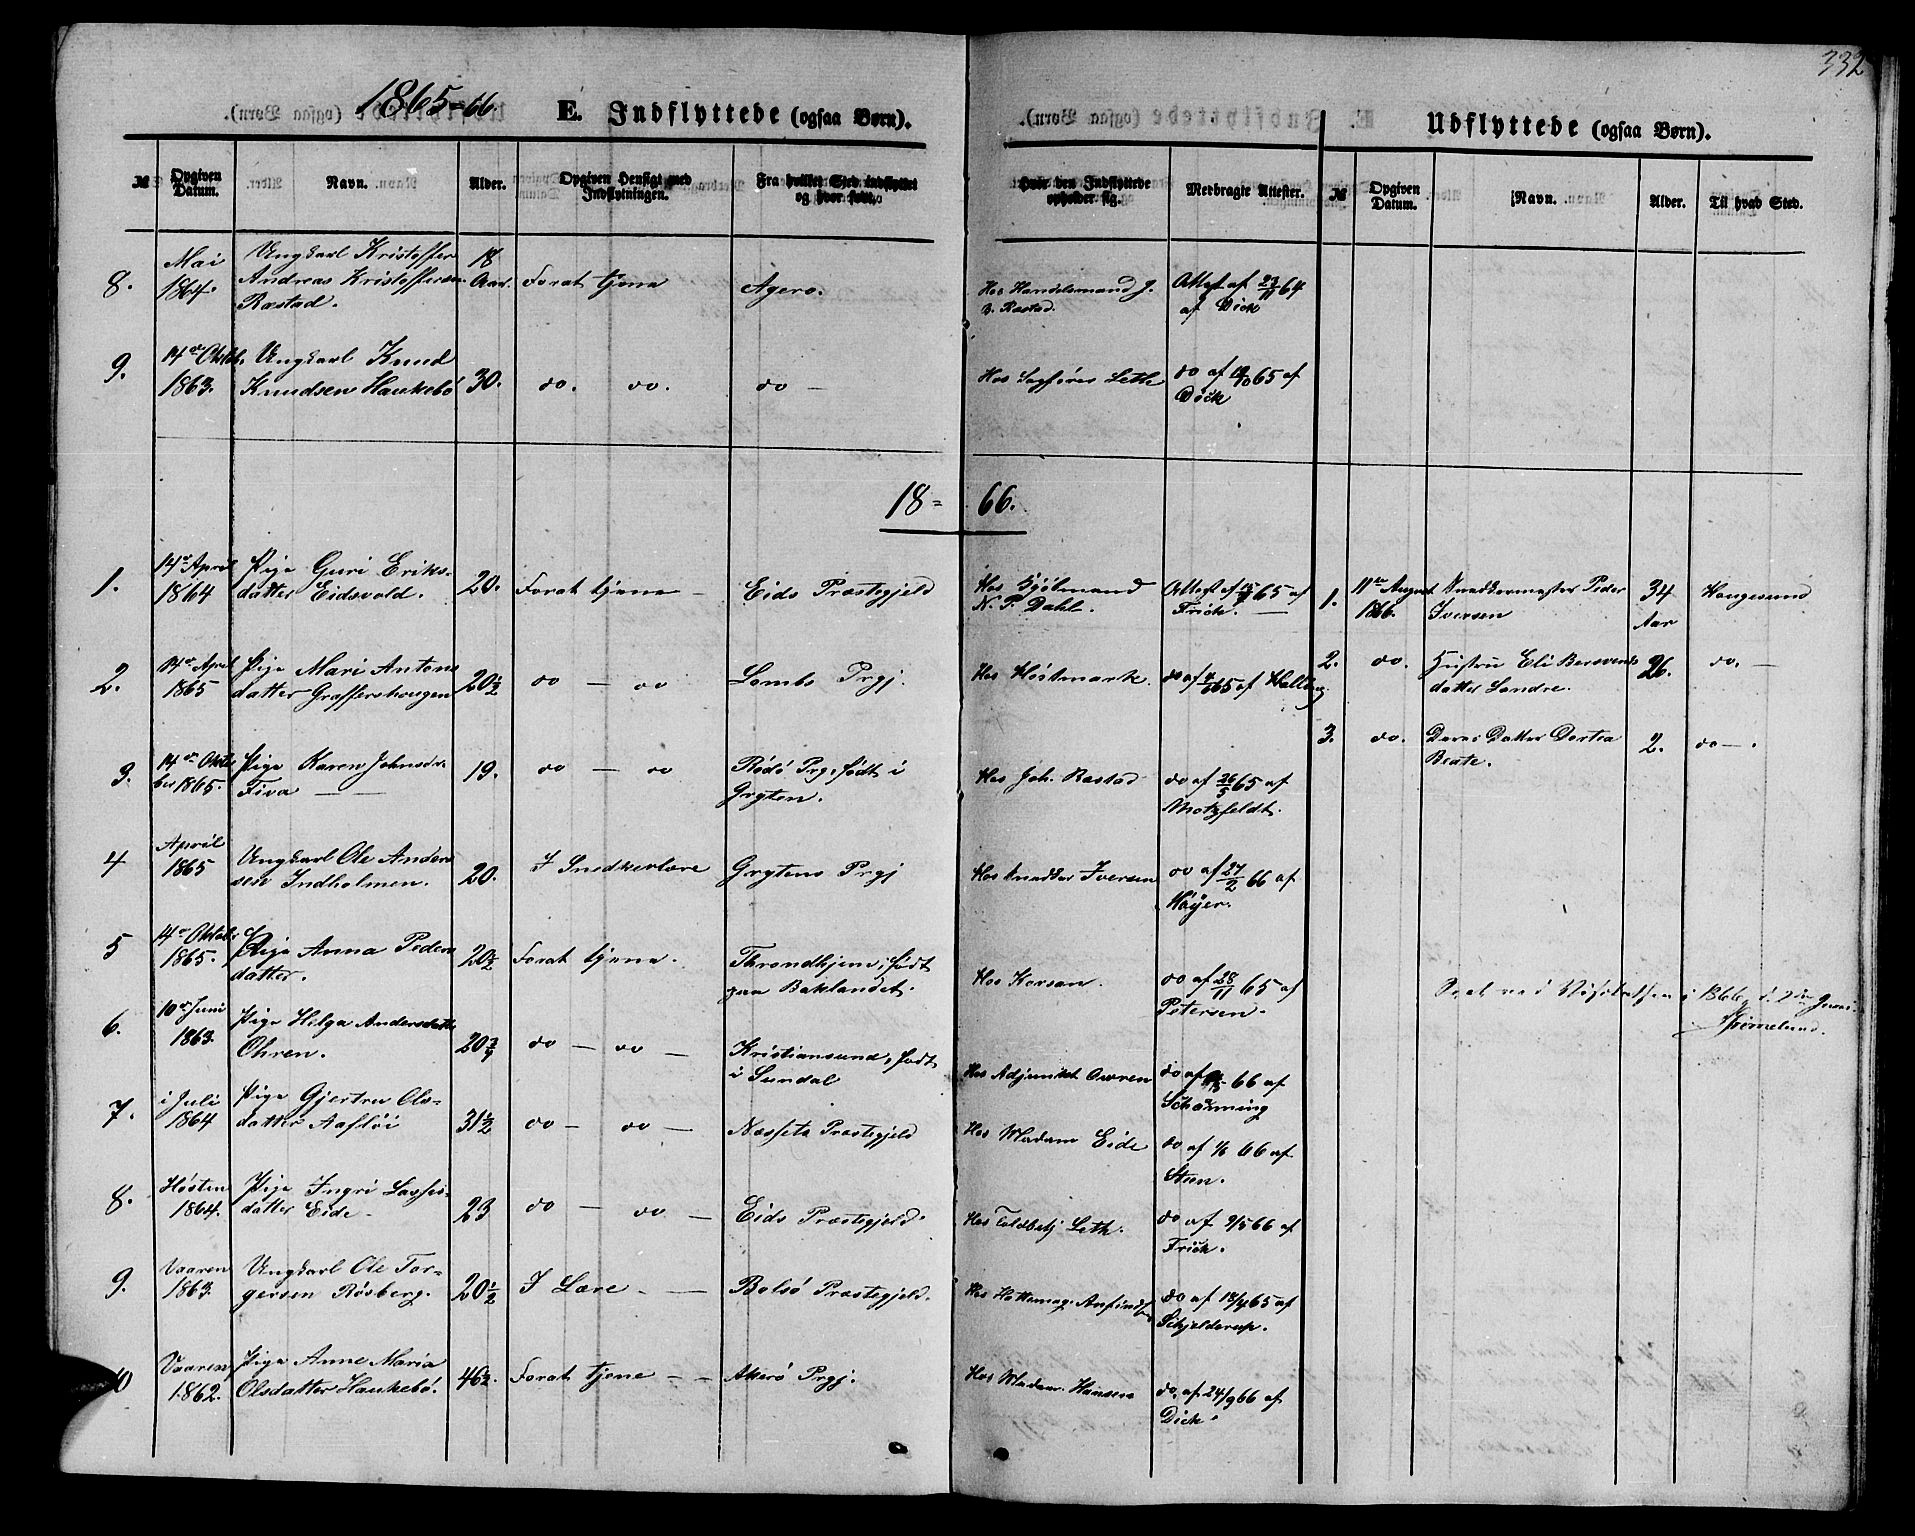 332
1865-66.
E. Indflyttede (ogsaa Børn).
Udflyttede (ogsaa Børn).
№ Opgiven Datum. Navn. Alder. Opgiven Hensigt med Indflytningen. Fra hvilket Sted indflyttet og hvor født.
Hvor den Indflyttede opholder sig. Medbragte Attester. № Opgiven Datum. Navn. Alder. Til hvad Sted.
8. Mai 1864. Ungkarl Kristoffer Andreas Kristoffersen Rastad. 18 Aar. Forat tjene Agerø. Hos Handelsmand J. B. Rastad. Attest af 23/11 64 af Dick
9. 14de Oktob. 1863. Ungkarl Knud Knudsen Haukebø 30. do. do. do — Hos Sagfører Leth do af 65 af Dick
18= 66.
1. 14de April 1864 Pige Guri Eriksdatter Eidsvold. 20. Forat tjene — Eids Præstegjeld Hos N. P. Dahl. Attest af 65 af Frick. —
2. 14de April 1865 Pige Mari Antonsdatter Graffershaugen 20½ do — do Lombs Prgj. Hos Høstmark. do af 65 af Halling
3. 14de Oktober 1865. Pige Karen Johnsdr. Fiva — 19. do — do Rødø Prg., født i Grytten. Hos Joh. Rastad do af 26/5 65 af Motzfeldt.
4 April 1865 Ungkarl Ole Andersen Indholmen. 20. I Snedkerlære Gryttens Prgj Hos Snedker Iversen do af 27/2 66 af Høyer.
5 14de Oktob. 1865. Pige Anna Pedersdatter. 20½ Forat tjene. Throndhjem, født paa Baklandet. Hos Korsan. do af 28/11 65 af Petersen.
6. 10de Juni 1863. Pige Helga Andersdatter Ohren. 20¾ do — do — Kristiansund, født i Sundal Hos Adjunkt Owren do af 66 af Schanning
7. i Juli 1864 Pige Gjertru Olsdatter Aafløi 31½ do — do — Nessets Præstegjeld Hos Madam Eide do af 1/6 66 af Steen.
8. Høsten 1864. Pige Ingri Lassesdatter Eide — 23 do — do — Eids Præstegjeld. Hos Toldbetj Leth. do af 9/5 66 af Frick.
9. Vaaren 1863. Ungkarl Ole Torgersen Røsberg. 20½ I Lære — — Bolsø Præstegjeld. Hos Hattemag. Anfindsen do af 18/4 65 af Schjelderup.
10 Vaaren 1862. Pige Anne Maria Olsdatter Haukebø. 46½. Forat tjene — — Akerø Prgj. Hos Madam Hansen do. af 24/9 66 af Dick.
1. 11te August 1866. Snedkermester Peder Iversen 34 Aar Haugesund
2. do. Hustru Eli Bersvendsdatter Landre. 26. do. —
3. do. Deres Datter Dortea Beate. 2. do —.
Seet ved Visitatsen i 1866, d. 2den Juni.